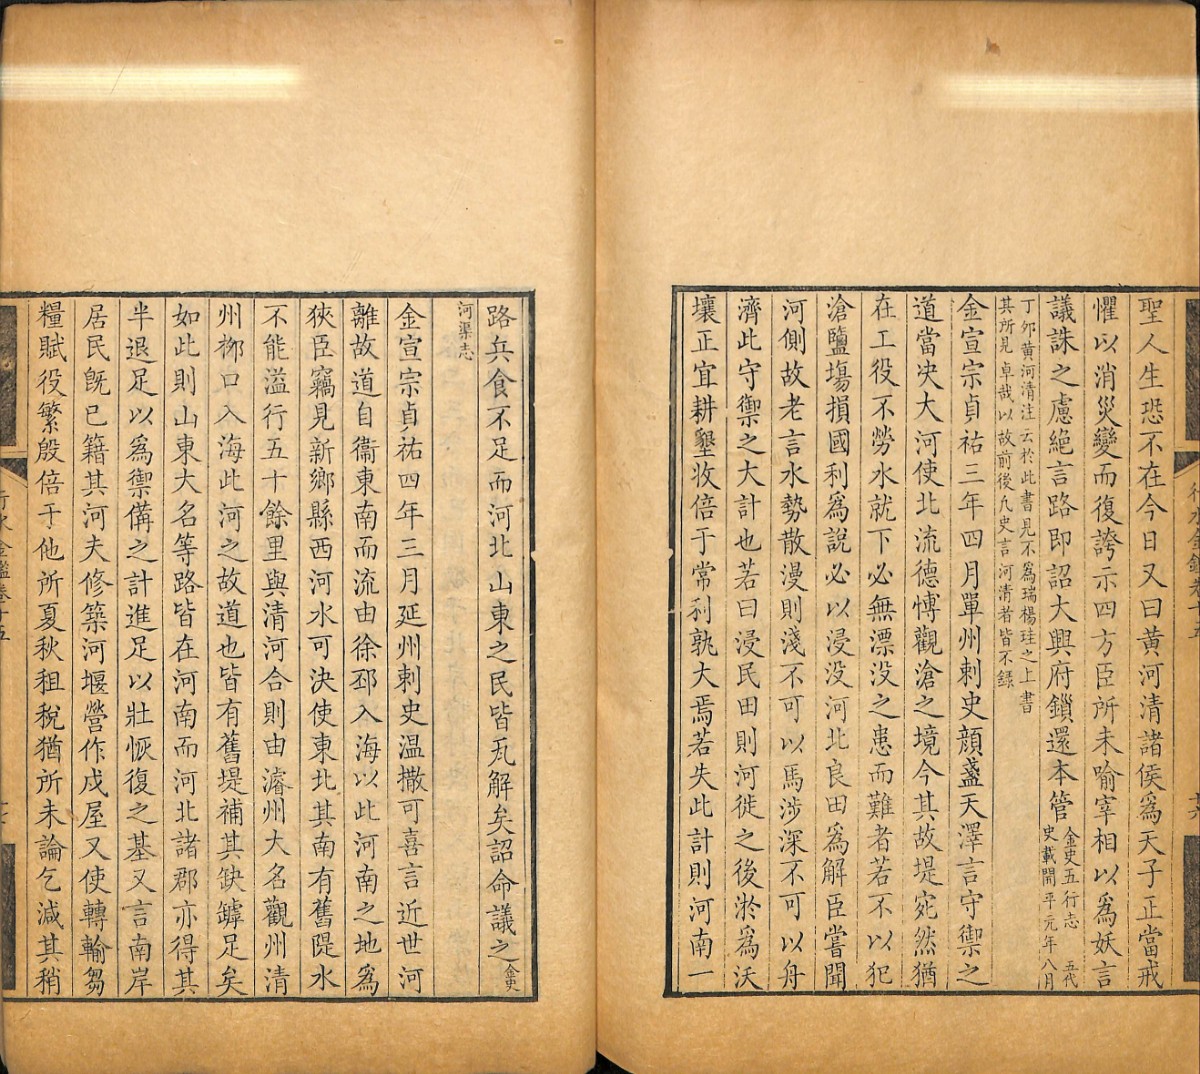 聖人生恐不在今日又曰黄河清諸侯爲天子正當戒
懼以消災變而復誇示四方臣所未喻宰相以爲妖言
議誅之慮絶言路即詔大興府鎖還本管金史五行志 五代
史載開平元年八月
丁卯黄河清注云於此書見不爲瑞楊珪之上書
其所見卓哉以故前後凡史言河清者皆不録
金宣宗貞祐三年四月單州刺史顔盞天澤言守禦之
道當决大河使北流德愽觀滄之境今其故堤宛然猶
在工役不勞水就下必無漂没之患而難者若不以犯
滄鹽塲損國利爲說必以浸没河北良田爲解臣嘗聞
河側故老言水勢散漫則淺不可以馬涉深不可以舟
濟此守禦之大計也若曰浸民田則河徙之後淤爲沃
壤正宜耕墾收倍于常利孰大焉若失此計則河南一
路兵食不足而河北山東之民皆瓦解矣詔命議之金史
河渠志
金宣宗貞祐四年三月延州刺史温撒可喜言近世河
離故道自衞東南而流由徐邳入海以此河南之地爲
狹臣竊見新鄉縣西河水可決使東北其南有舊隄水
不能溢行五十餘里與清河合則由濬州大名觀州清
州栁口入海此河之故道也皆有舊堤補其缺罅足矣
如此則山東大名等路皆在河南而河北諸郡亦得其
半退足以爲禦備之計進足以壯恢復之基又言南岸
居民旣已籍其河夫修築河堰營作戍屋又使轉輸芻
糧賦役繁殷倍于他所夏秋租稅猶所未論乞減其稍
行水金鑑卷十五